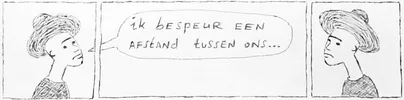 ik BESPEUR EEN
AFSTAND tUSSEN ONS...